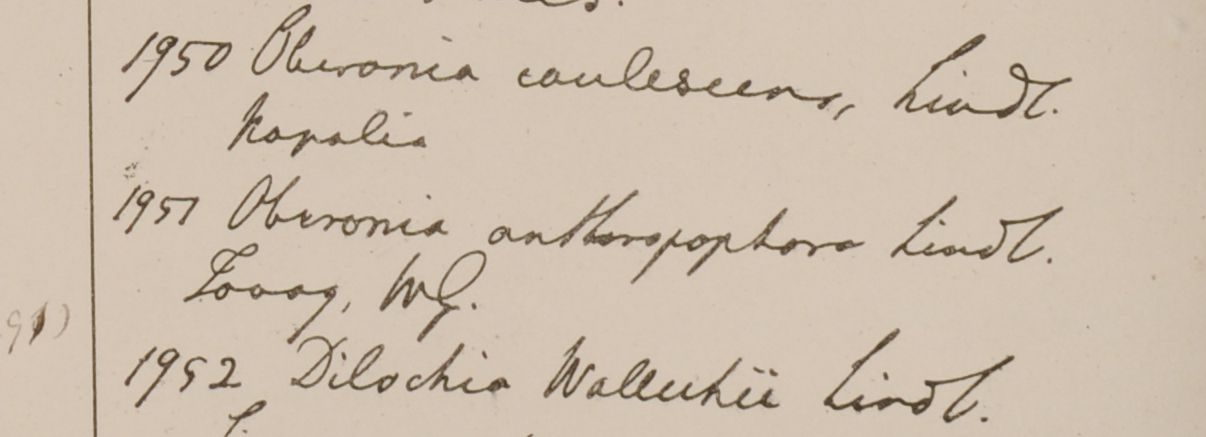 1950 Oberonia caulescens, Lindl.
Napalia
1951 Oberonia anthropophora Lindl.
Tavoy, WG.
1952 Dilochia Wallichii Lindl.